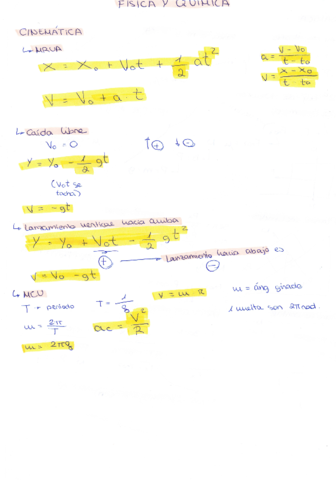 FÍSICA Y QUÍMICA
CINEMÁTICA
↳ MRUA
x = x₀ + v₀t + 1/2 at²
a = v - v₀ / t - t₀
v = x - x₀ / t - t₀
v = v₀ + a t
↳ Caída libre
v₀ = 0
↑⊕ ↓⊖
y = y₀ - 1/2 gt
(v₀t se
tacha)
v = -gt
↳ Lanzamiento vertical hacia arriba
y = y₀ + v₀t - 1/2 gt²
⊕ → Lanzamiento hacia abajo es
⊖
v = v₀ - gt
↳ MCU
T = período
T = 1/f
v = ω R
ω = áng girado
1 vuelta son 2π rad
ω = 2π/T
ac = v²/R
ω = 2πf